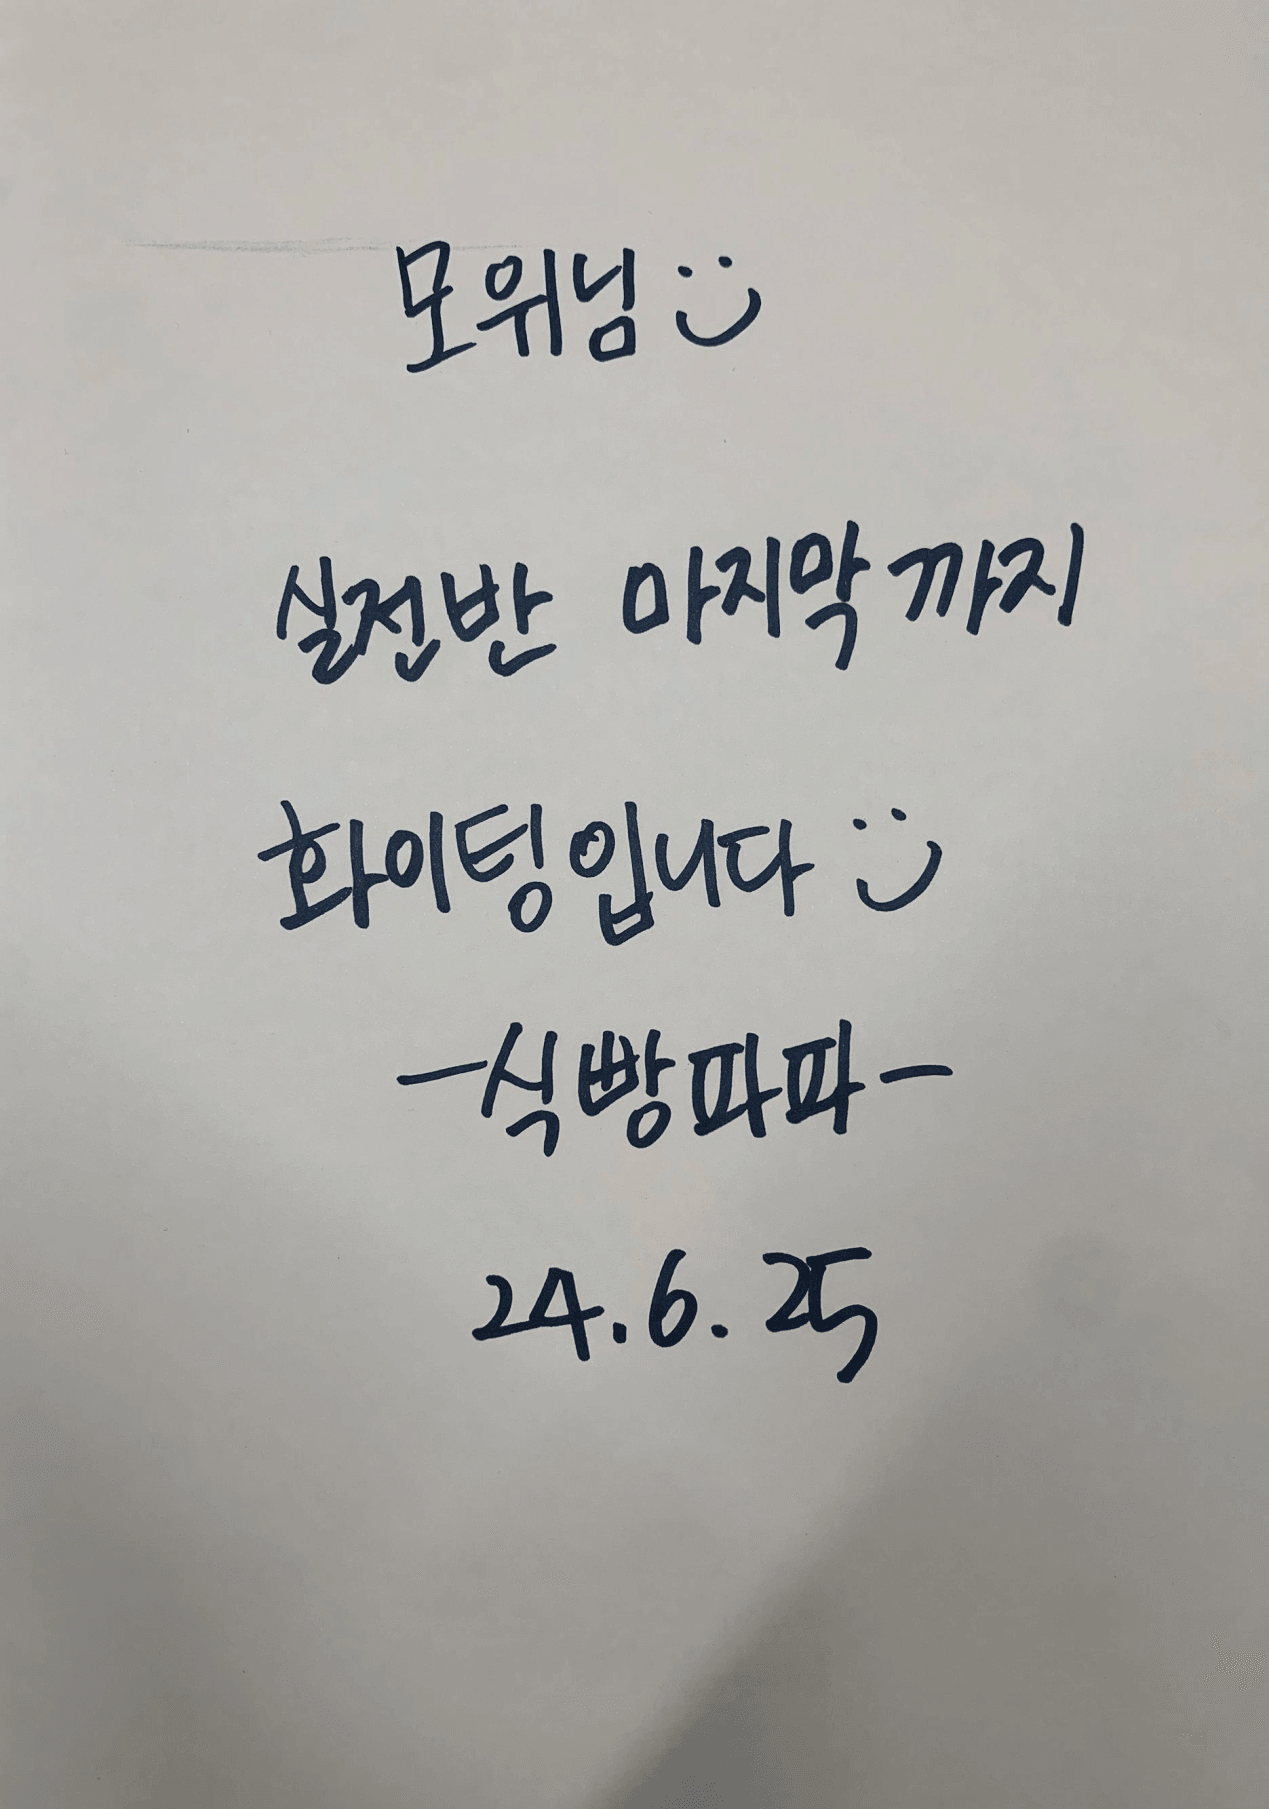 모위님 :)
실전반 마지막까지
화이팅입니다 :)
-식빵파파-
24.6.25